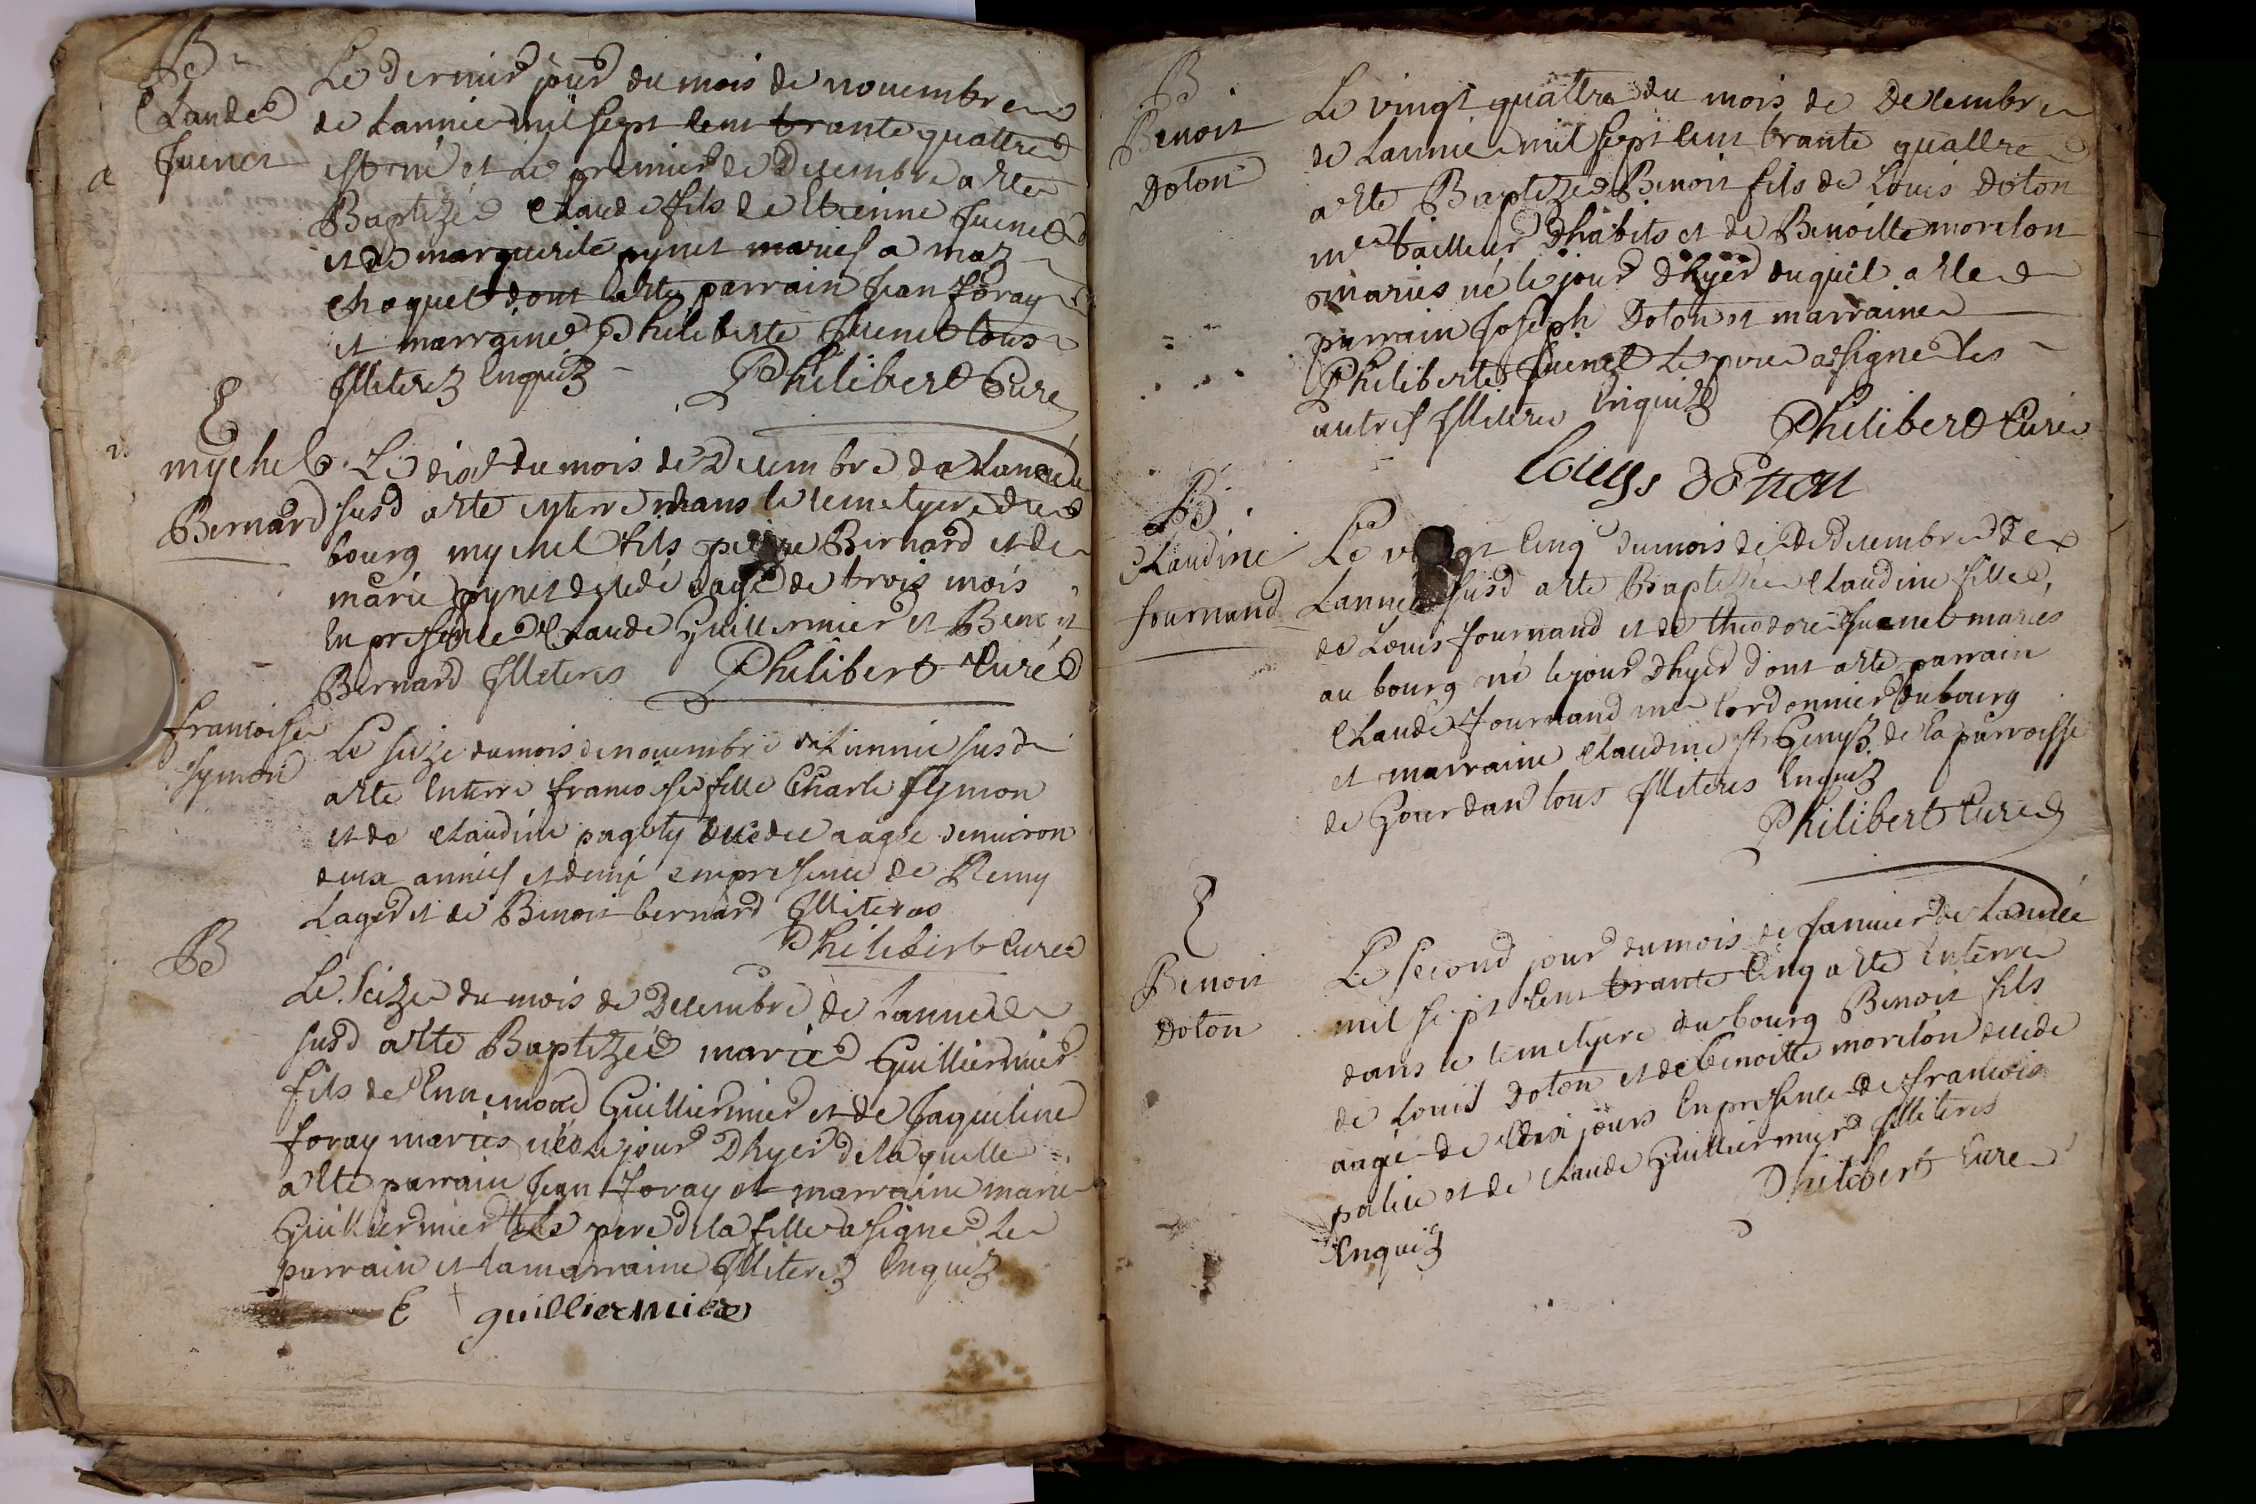 B
Claude
Juenet
Le dernier jour du mois de novembre
de Lannee mil sept cent trante quattre
est né et le premier de Decembre a ette
Baptizé Claude fils de Etienne Juenet
et de marguerite pynet mariés a
choquet dont a ette parrain Jean foray
et marraine Philiberte Juenet tous
Illiterez Enquiz
Philibert Curé
E
mychel
Bernard
Le dix du mois de Decembre de Lannee
susd a ette enterre dans le cemetyere du
bourg mychel fils pierre Bernard et de
marie pynet decedé aagé de trois mois
en presence Claude Guillermier et Benoit
Bernard Illiteres Philibert Curé
francoise
symon
Le seize du mois de novembre de Lannee susd
a ette Enterre francoise fille Charle symon
et de Claudine pagoty decedee aagee denuiron
deux années et demi en presence de Remy
Lager et de Benoit bernard Illiteres
Philibert Curé
B
Le Seize du mois de Decembre de Lannee
susd a ette Baptizée marie Guilliermier
fils de Ennemond Guilliermier et de Jaqueline
foray mariés née le jour Dhyer de laquelle
a ette parrain Jean foray et marraine marie
Guilliermier Le pere de la fille a signé Le
parrain et la marraine Illiterez Enquiz
E guilliermier
B
Benoit
Doton
Le vingt quattre du mois de Decembre
de Lannee mil sept cent trante quattre
a ette Baptizé Benoit fils de Louis Doton
me tailleur Dhabits et de Benoitte morelon
mariés né le jour Dhyer duquel a ette
parrain Joseph Doton et marraine
Philiberte Juenet Le pere a signé les
autres Illiteres Enquiz
Philibert Curé
Louys doton
B
Claudine
fournand
Le vingt Cinq du mois de Decembre de
Lannee susd a ette Baptizée Claudine fille
de Louis fournand et de theodore Juenet mariés
au bourg né le jour Dhyer dont a ette parrain
Claude fournand me Cordonnier du bourg
et marraine Claudine st Genyz de la parroisse
de Gourdan tous Illiteres Enquiz
Philibert Curé
E
Benoit
Doton
Le second jour du mois de Januier de Lannée
mil sept Cent trante Cinq a ette Enterre
dans le cemetyere du bourg Benoit fils
de Louis Doton et de benoitte morelon decede
aagé de dix jours En presence de francois
palice et de Claude Guilliermier Illiteres
Enquiz
Philibert Curé